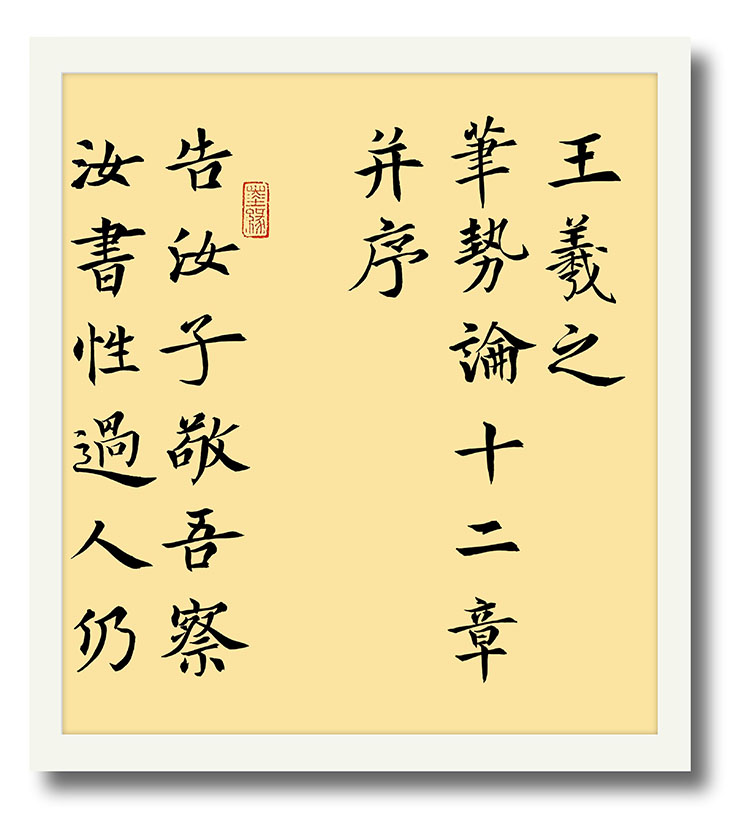 王羲之
筆勢論十二章
并序
告汝子敬吾察
汝書性過人仍